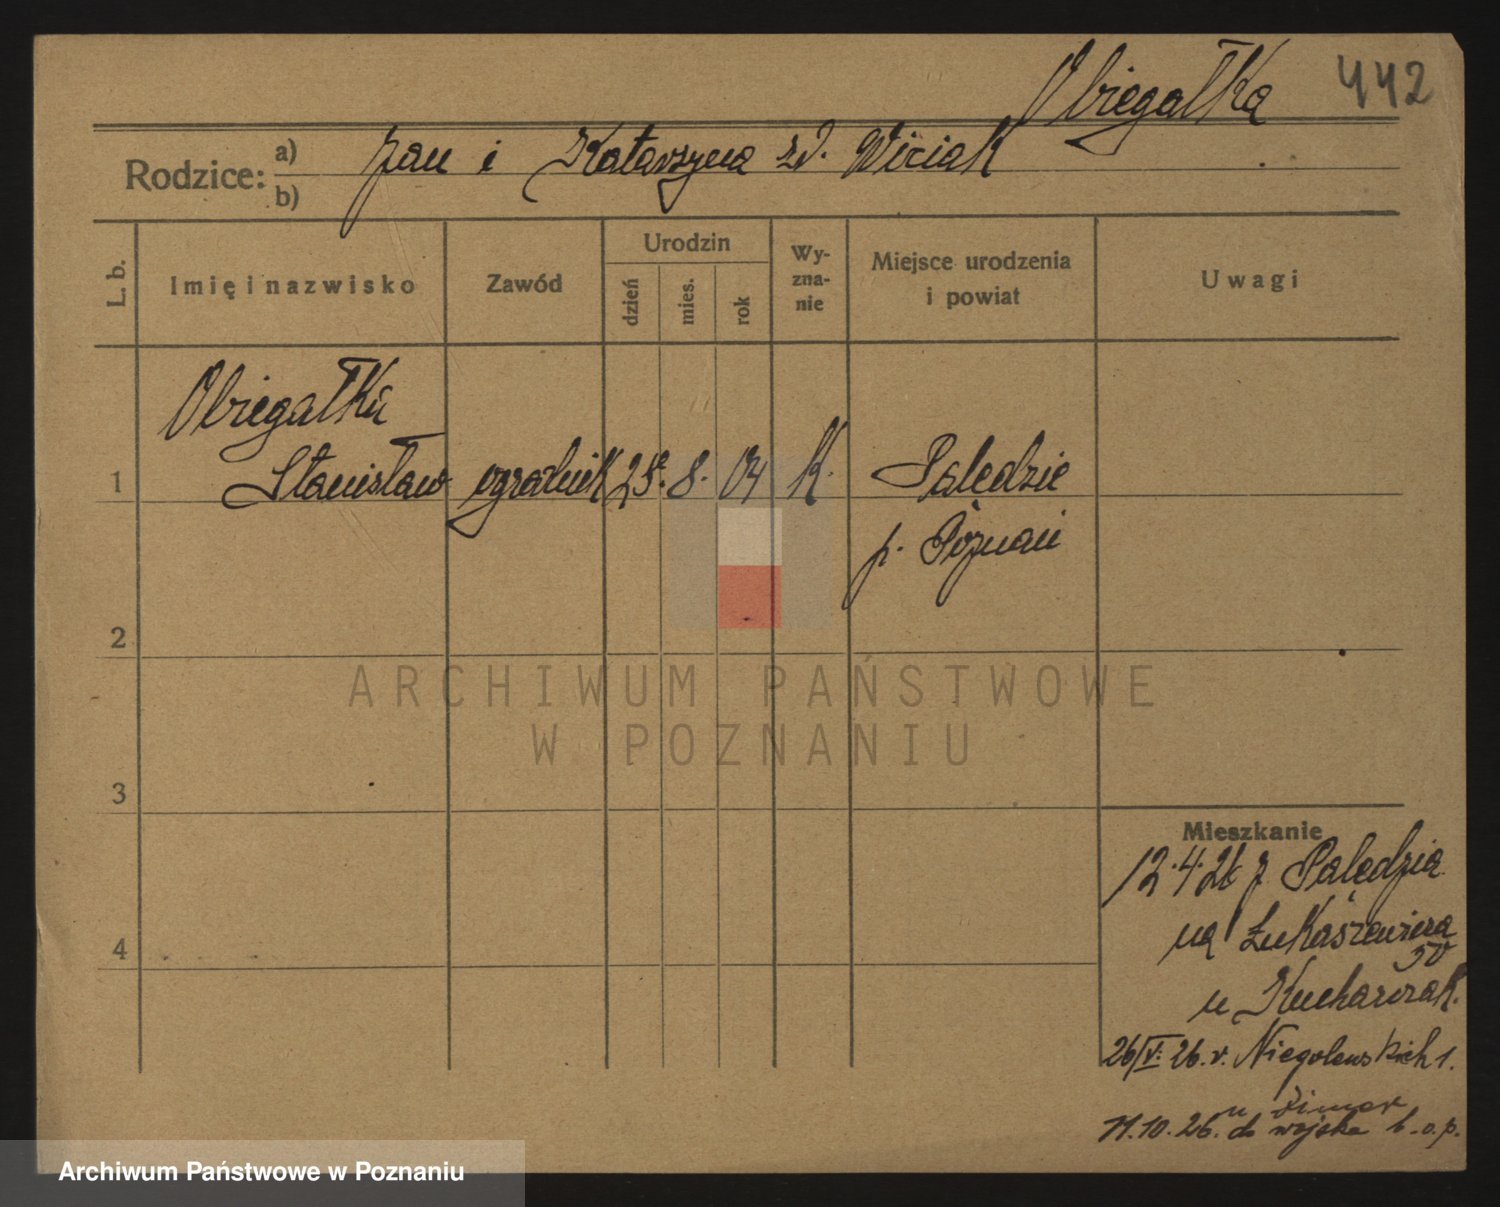 Obiegałka 442
Rodzice: a) Jan i Katarzyna zd. Wiciak
b)
L. b.
Imię i nazwisko
Zawód
Urodzin
dzień
mies.
rok
Wy-
zna-
nie
Miejsce urodzenia
i powiat
Uwagi
Obiegałka
1 Stanisław ogrodnik 8. 04 k. Palędzie
p. Poznań
2
ARCHIWUM PAŃSTWOWE
W POZNANIU
3
Mieszkanie
12.4.26 z Palędzia
na Łukaszewicza
4
u Kucharczak.
26/V. 26. v. Niegolewskich 1.
u
11.10.26. do wojska b.o.p.
Archiwum Państwowe w Poznaniu